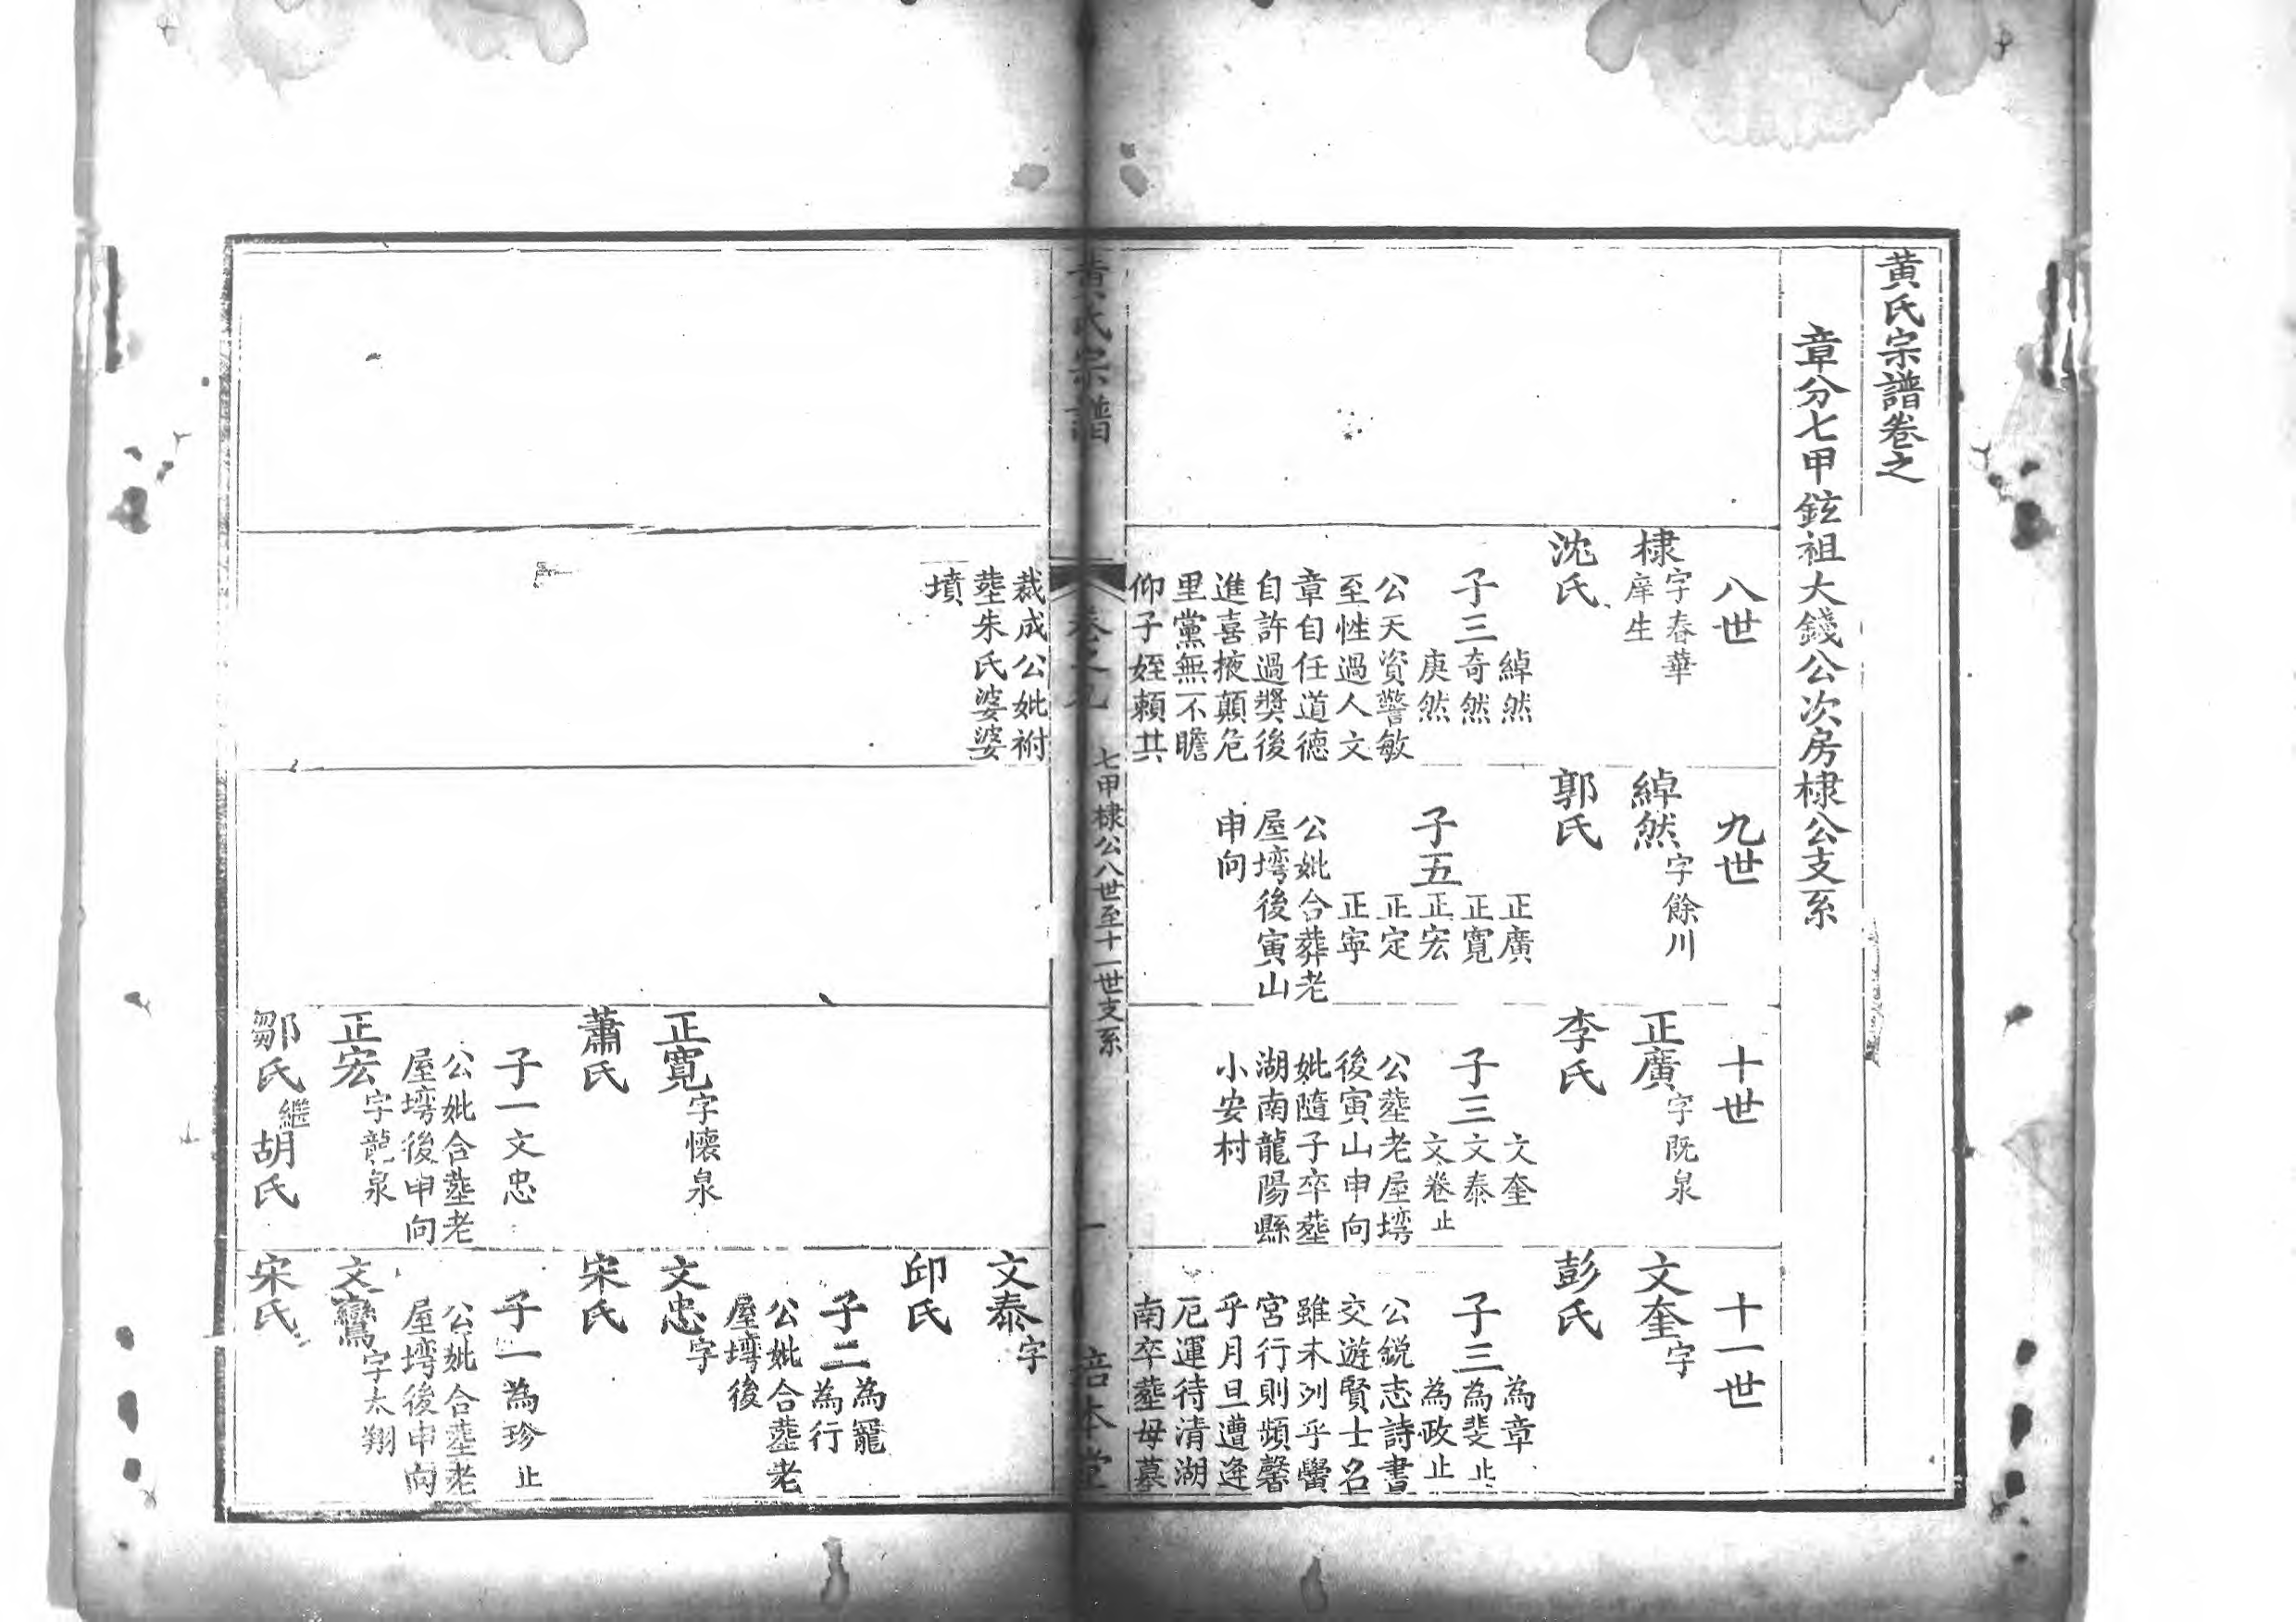 黄氏宗譜卷之
章分七甲鉉祖大錢公次房棣公支系
八世
棣字春華
庠生
沈氏
子三
綽然
奇然
庚然
公天資警敏
至性過人文
章自任道德
自許過獎後
進喜掖顛危
里黨無不瞻
仰子姪賴其
九世
綽然字餘川
郭氏
子五
正廣
正寬
正宏
正定
正寧
公妣合葬老
屋塆後寅山
申向
十世
正廣字既泉
李氏
子三
文奎
文泰
文卷止
公塟老屋塆
後寅山申向
妣隨子卒塟
湖南龍陽縣
小安村
十一世
文奎字
彭氏
子三
為章
為斐止
為政止
公鋭志詩書
交遊賢士名
雖未列乎黌
宮行則頻馨
乎月旦遭逢
厄運待清湖
南卒塟母墓
黄氏宗譜
卷之九
七甲棣公八世至十一世支系
一
培本堂
裁成公妣祔
塟朱氏婆婆
墳
正寬字懷泉
蕭氏
子一文忠
公妣合塟老
屋塆後申向
正宏字龍泉
鄒氏繼胡氏
文泰字
邱氏
子二
為寵
為行
公妣合塟老
屋塆後
文忠字
宋氏
子一為珍止
公妣合塟老
屋塆後申向
文鸞字太翔
宋氏